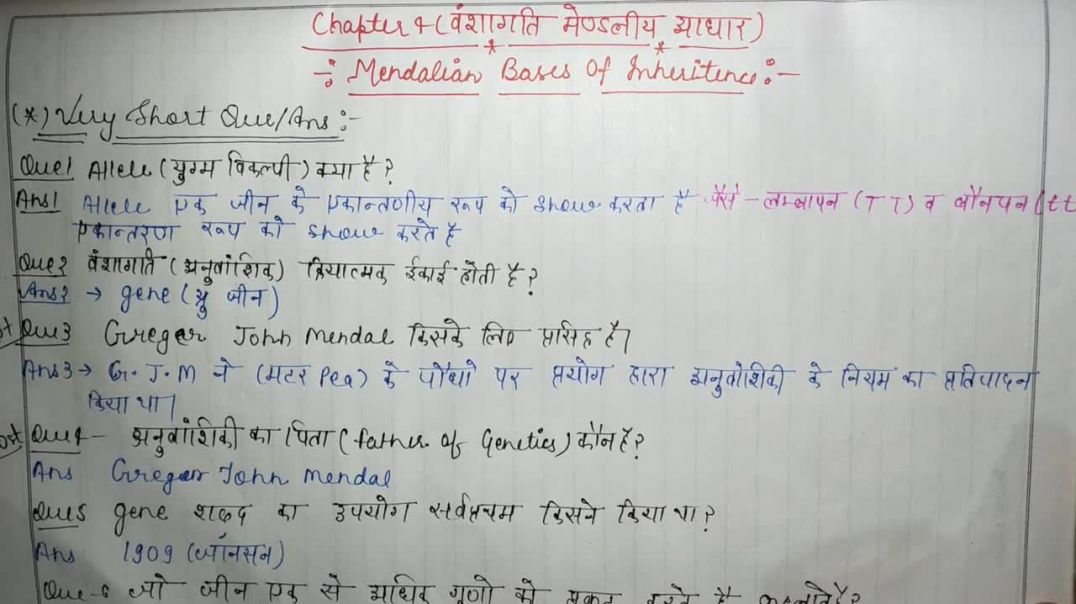 Chapter 4 (वंशागति मेण्डलीय आधार)
-: Mendalian Bases Of Inheritence :-
(*) Very Short Que/Ans :-
Que1 Allele (युग्म विकल्पी) क्या है ?
Ans1 Allele एक जीन के एकान्तणीय रूप को show करता है जैसे - लम्बापन (TT) व बौनपन (tt
एकान्तरण रूप को show करते है
Que2 वंशागति (अनुवांशिक) क्रियात्मक ईकाई होती है ?
Ans2 → gene (जीन)
Que3 Gregar John Mendal किसके लिए प्रसिद्ध है।
Ans3 → G.J.M ने (मटर Pea) के पौधो पर प्रयोग द्वारा अनुवांशिकी के नियम का प्रतिपादन
किया था।
Que4 - अनुवांशिकी का पिता (father of Genetics) कौन है ?
Ans Gregar John Mendal
Que5 gene शब्द का उपयोग सर्वप्रथम किसने किया था ?
Ans 1909 (जॉनसन)
Que-6 जो जीन एक से अधिक गुणो को प्रकट करते है कहलाते है ?